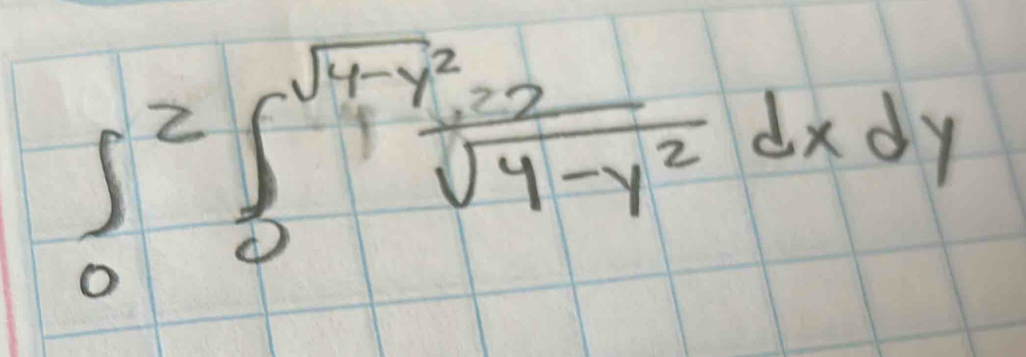 ∫₀² ∫₀^√(4-y²) 22/√(4-y²) dx dy